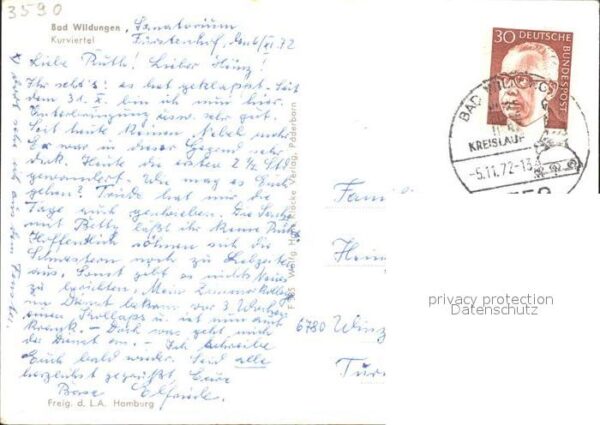 3590
Bad Wildungen, Sanatorium
Kurviertel Fürstenhof, den 6/XI. 72
Liebe Ruth! Lieber Heinz!
Ihr seht's: es hat geklappt. Seit
dem 31. X. bin ich nun hier.
Unterbringung usw. sehr gut.
Seit heute keinen Nebel mehr
Er war in dieser Gegend sehr
dick. Heute die ersten 2 ½ St.
gewandert. Wie mag es Euch
gehen? Trude hat mir die
Tage auch geschrieben. Die Sache
mit Betty läßt ihr keine Ruhe
Hoffentlich söhnen sich die
Schwestern noch zu Lebzeiten
aus. Sonst gibt es nichts Neues
zu berichten. Mein Zimmerkollege
im Dienst bekam vor 3 Wochen
einen Kollaps u. ist nun auch
krank. - Doch was geht mich
der Dienst an. - Ich schreibe
Euch bald wieder. Seid alle
herzlichst gegrüßt. Eure
Base Elfriede.
Freig. d. L.A. Hamburg
Verlag, Paderborn
30 DEUTSCHE BUNDESPOST
BAD WILDUNGEN
KREISLAUF
-5.11.72-13
Famil
Hein
6780
privacy protection
Datenschutz